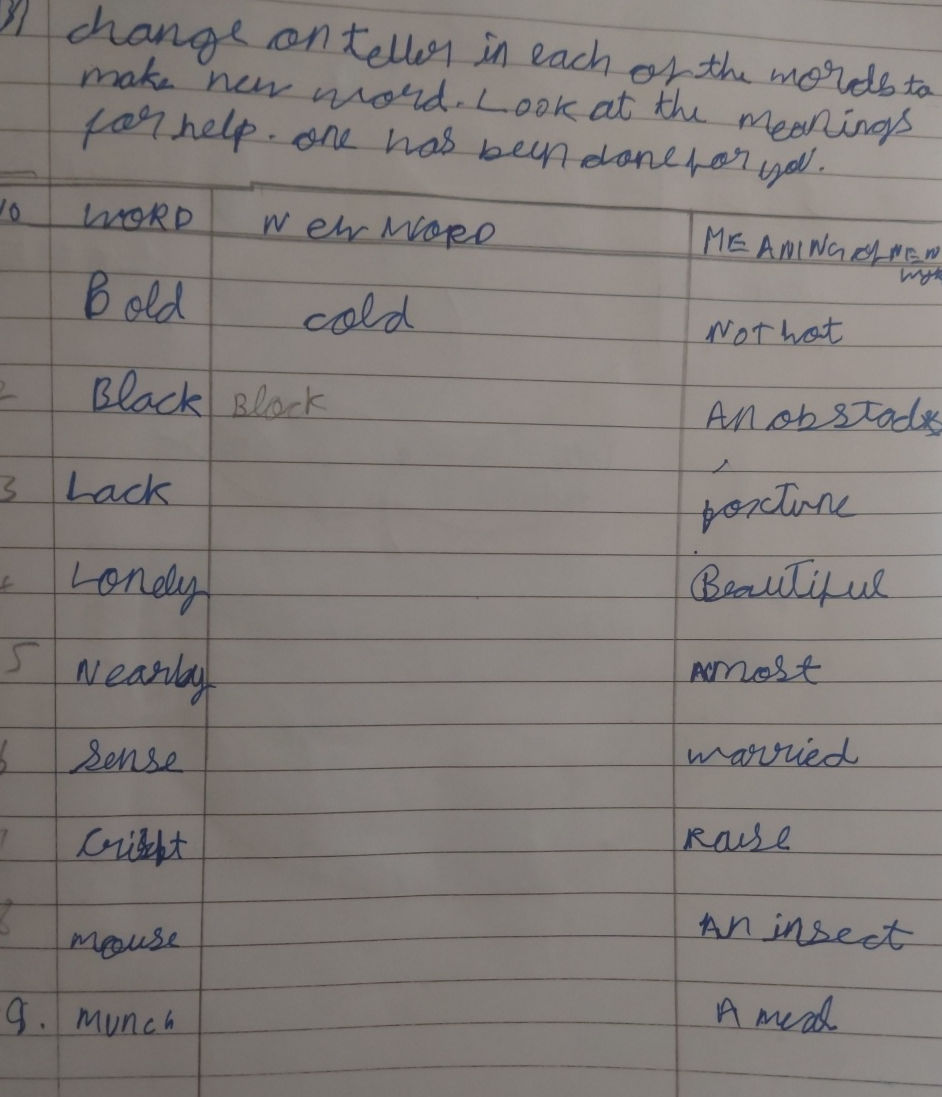 change on Teller in each of the words to
make new word. Look at the meanings
for help. one has been done for you.
10 WORD New WORD MEANING of NEW
Bold cold Not hot
2 Black Block An obstacle
3 Lack fortune
4 Lonely Beautiful
5 Nearby Amost
6 Sense worried
7 Raise
8 mouse An insect
9. munch A meal